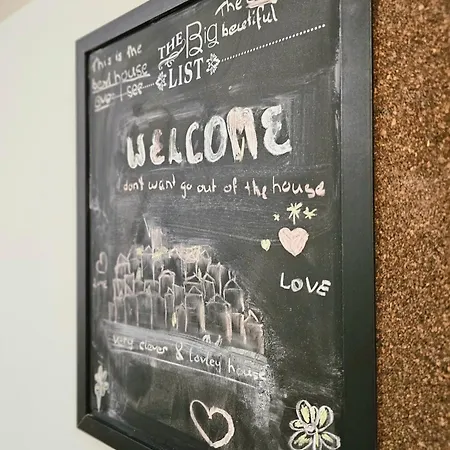 This is the
best house
ever I see
THE Big LIST
The
beautiful
WELCOME
I don't want go out of the house
LOVE
very clever & lovley house